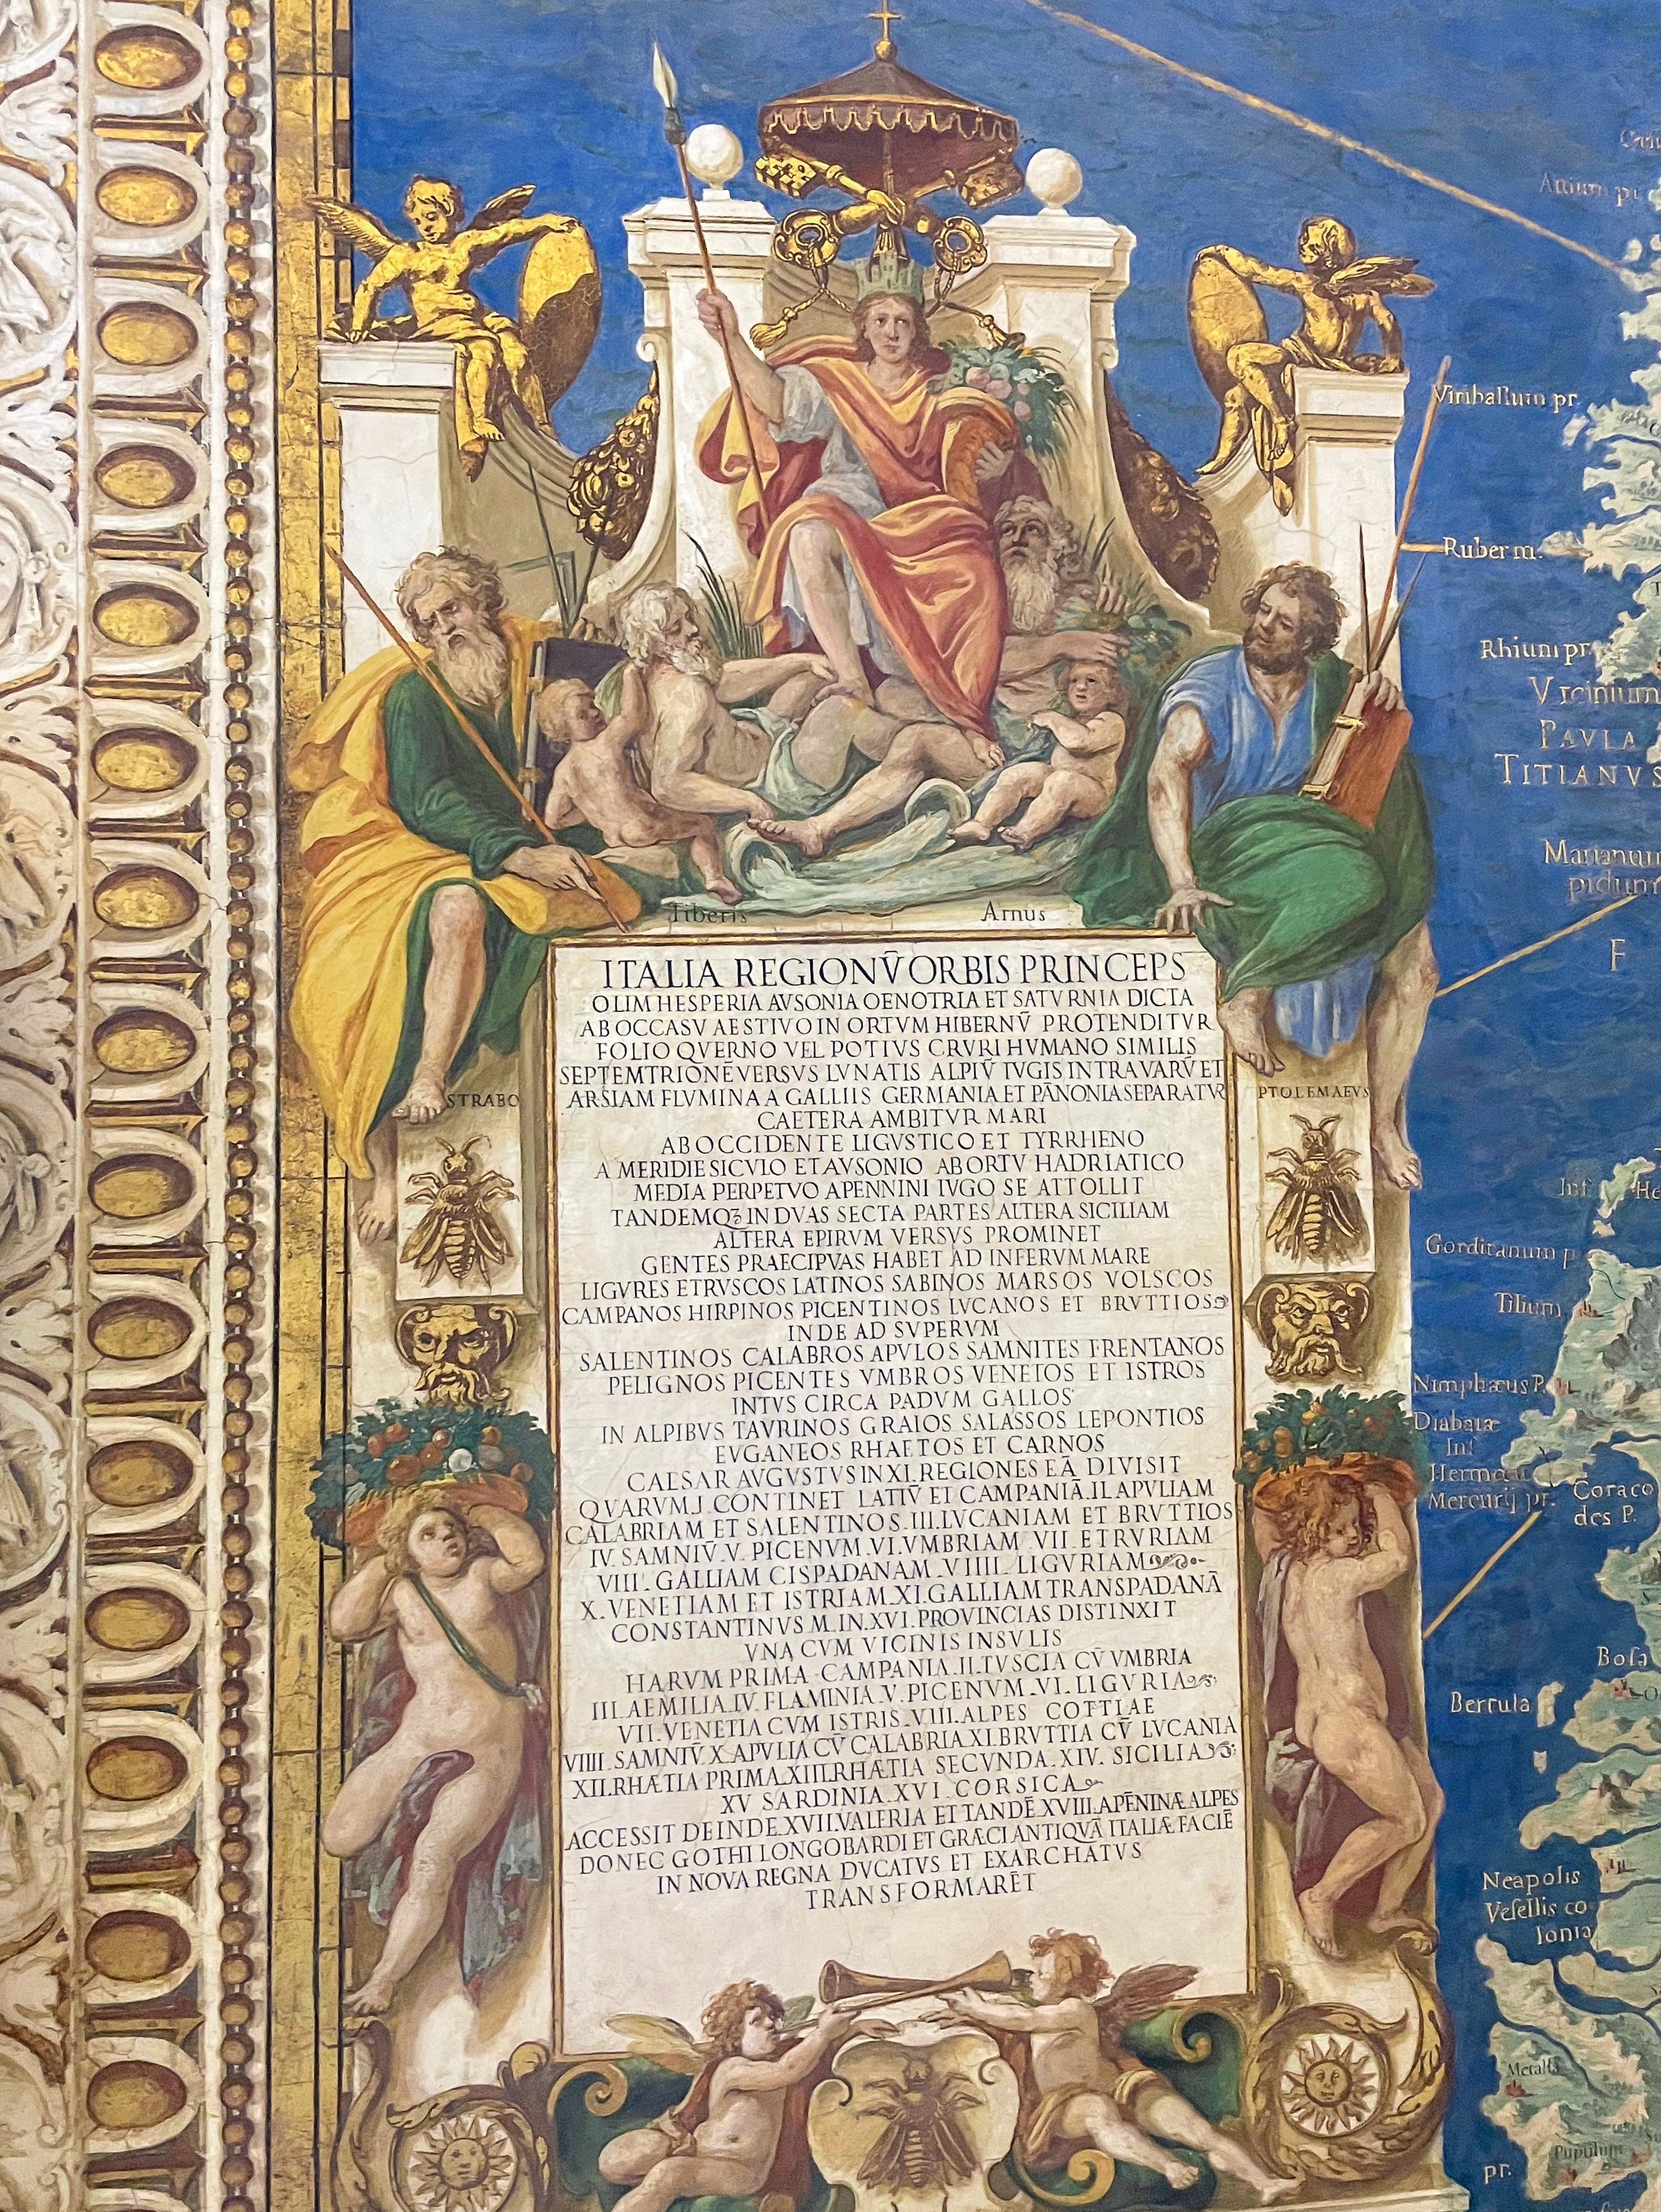 Viriballum pr.
Ruber m.
Rhium pr.
Vrcinium
PAVLA
TITIANVS
Marianum
pidum
F
Tiberis
Arnus
ITALIA REGIONV̄ ORBIS PRINCEPS
OLIM HESPERIA AVSONIA OENOTRIA ET SATVRNIA DICTA
AB OCCASV AESTIVO IN ORTVM HIBERNV̄ PROTENDITVR
FOLIO QVERNO VEL POTIVS CRVRI HVMANO SIMILIS
SEPTEMTRIONĒ VERSVS LVNATIS ALPIV̄ IVGIS INTRA VARV̄ ET
ARSIAM FLVMINA A GALLIIS GERMANIA ET PĀNONIA SEPARATVR
CAETERA AMBITVR MARI
AB OCCIDENTE LIGVSTICO ET TYRRHENO
A MERIDIE SICVLO ET AVSONIO AB ORTV HADRIATICO
MEDIA PERPETVO APENNINI IVGO SE ATTOLLIT
TANDEMQꝫ IN DVAS SECTA PARTES ALTERA SICILIAM
ALTERA EPIRVM VERSVS PROMINET
GENTES PRAECIPVAS HABET AD INFERVM MARE
LIGVRES ETRVSCOS LATINOS SABINOS MARSOS VOLSCOS
CAMPANOS HIRPINOS PICENTINOS LVCANOS ET BRVTTIOS
INDE AD SVPERVM
SALENTINOS CALABROS APVLOS SAMNITES FRENTANOS
PELIGNOS PICENTES VMBROS VENETOS ET ISTROS
INTVS CIRCA PADVM GALLOS
IN ALPIBVS TAVRINOS GRAIOS SALASSOS LEPONTIOS
EVGANEOS RHAETOS ET CARNOS
CAESAR AVGVSTVS IN XI. REGIONES EĀ DIVISIT
QVARVM.I. CONTINET LATIV̄ ET CAMPANIĀ.II.APVLIAM
CALABRIAM ET SALENTINOS.III.LVCANIAM ET BRVTTIOS
IV. SAMNIV̄.V. PICENVM.VI.VMBRIAM VII ETRVRIAM
VIII. GALLIAM CISPADANAM.VIIII. LIGVRIAM
X. VENETIAM ET ISTRIAM.XI.GALLIAM TRANSPADANĀ
CONSTANTINVS M. IN.XVI.PROVINCIAS DISTINXIT
VNA CVM VICINIS INSVLIS
HARVM PRIMA CAMPANIA.II.TVSCIA CV̄ VMBRIA
III.AEMILIA.IV.FLAMINIA.V.PICENVM.VI.LIGVRIA
VII.VENETIA CVM ISTRIS.VIII.ALPES COTTIAE
VIIII.SAMNIV̄.X.APVLIA CV̄ CALABRIA.XI.BRVTTIA CV̄ LVCANIA
XII.RHÆTIA PRIMA.XIII.RHÆTIA SECVNDA.XIV. SICILIA
XV SARDINIA.XVI CORSICA
ACCESSIT DEINDE.XVII.VALERIA ET TANDĒ.XVIII.APĒNINÆ ALPES
DONEC GOTHI LONGOBARDI ET GRÆCI ANTIQVĀ ITALIÆ FACIĒ
IN NOVA REGNA DVCATVS ET EXARCHATVS
TRANSFORMARĒT
STRABO
PTOLEMAEVS
Inf
Gorditanum p
Tilium
Nimphæus P.
Diabatæ
Inf
Hermæum
Mercurij pr.
Coraco
des P.
Bosa
Berrula
Neapolis
Vesellis co
lonia
Metalla
Pupulum
pr.